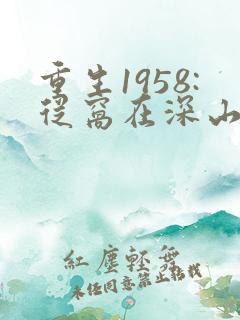 重生1958:
从窝在深山
红尘轻舞
未经同意禁止转载